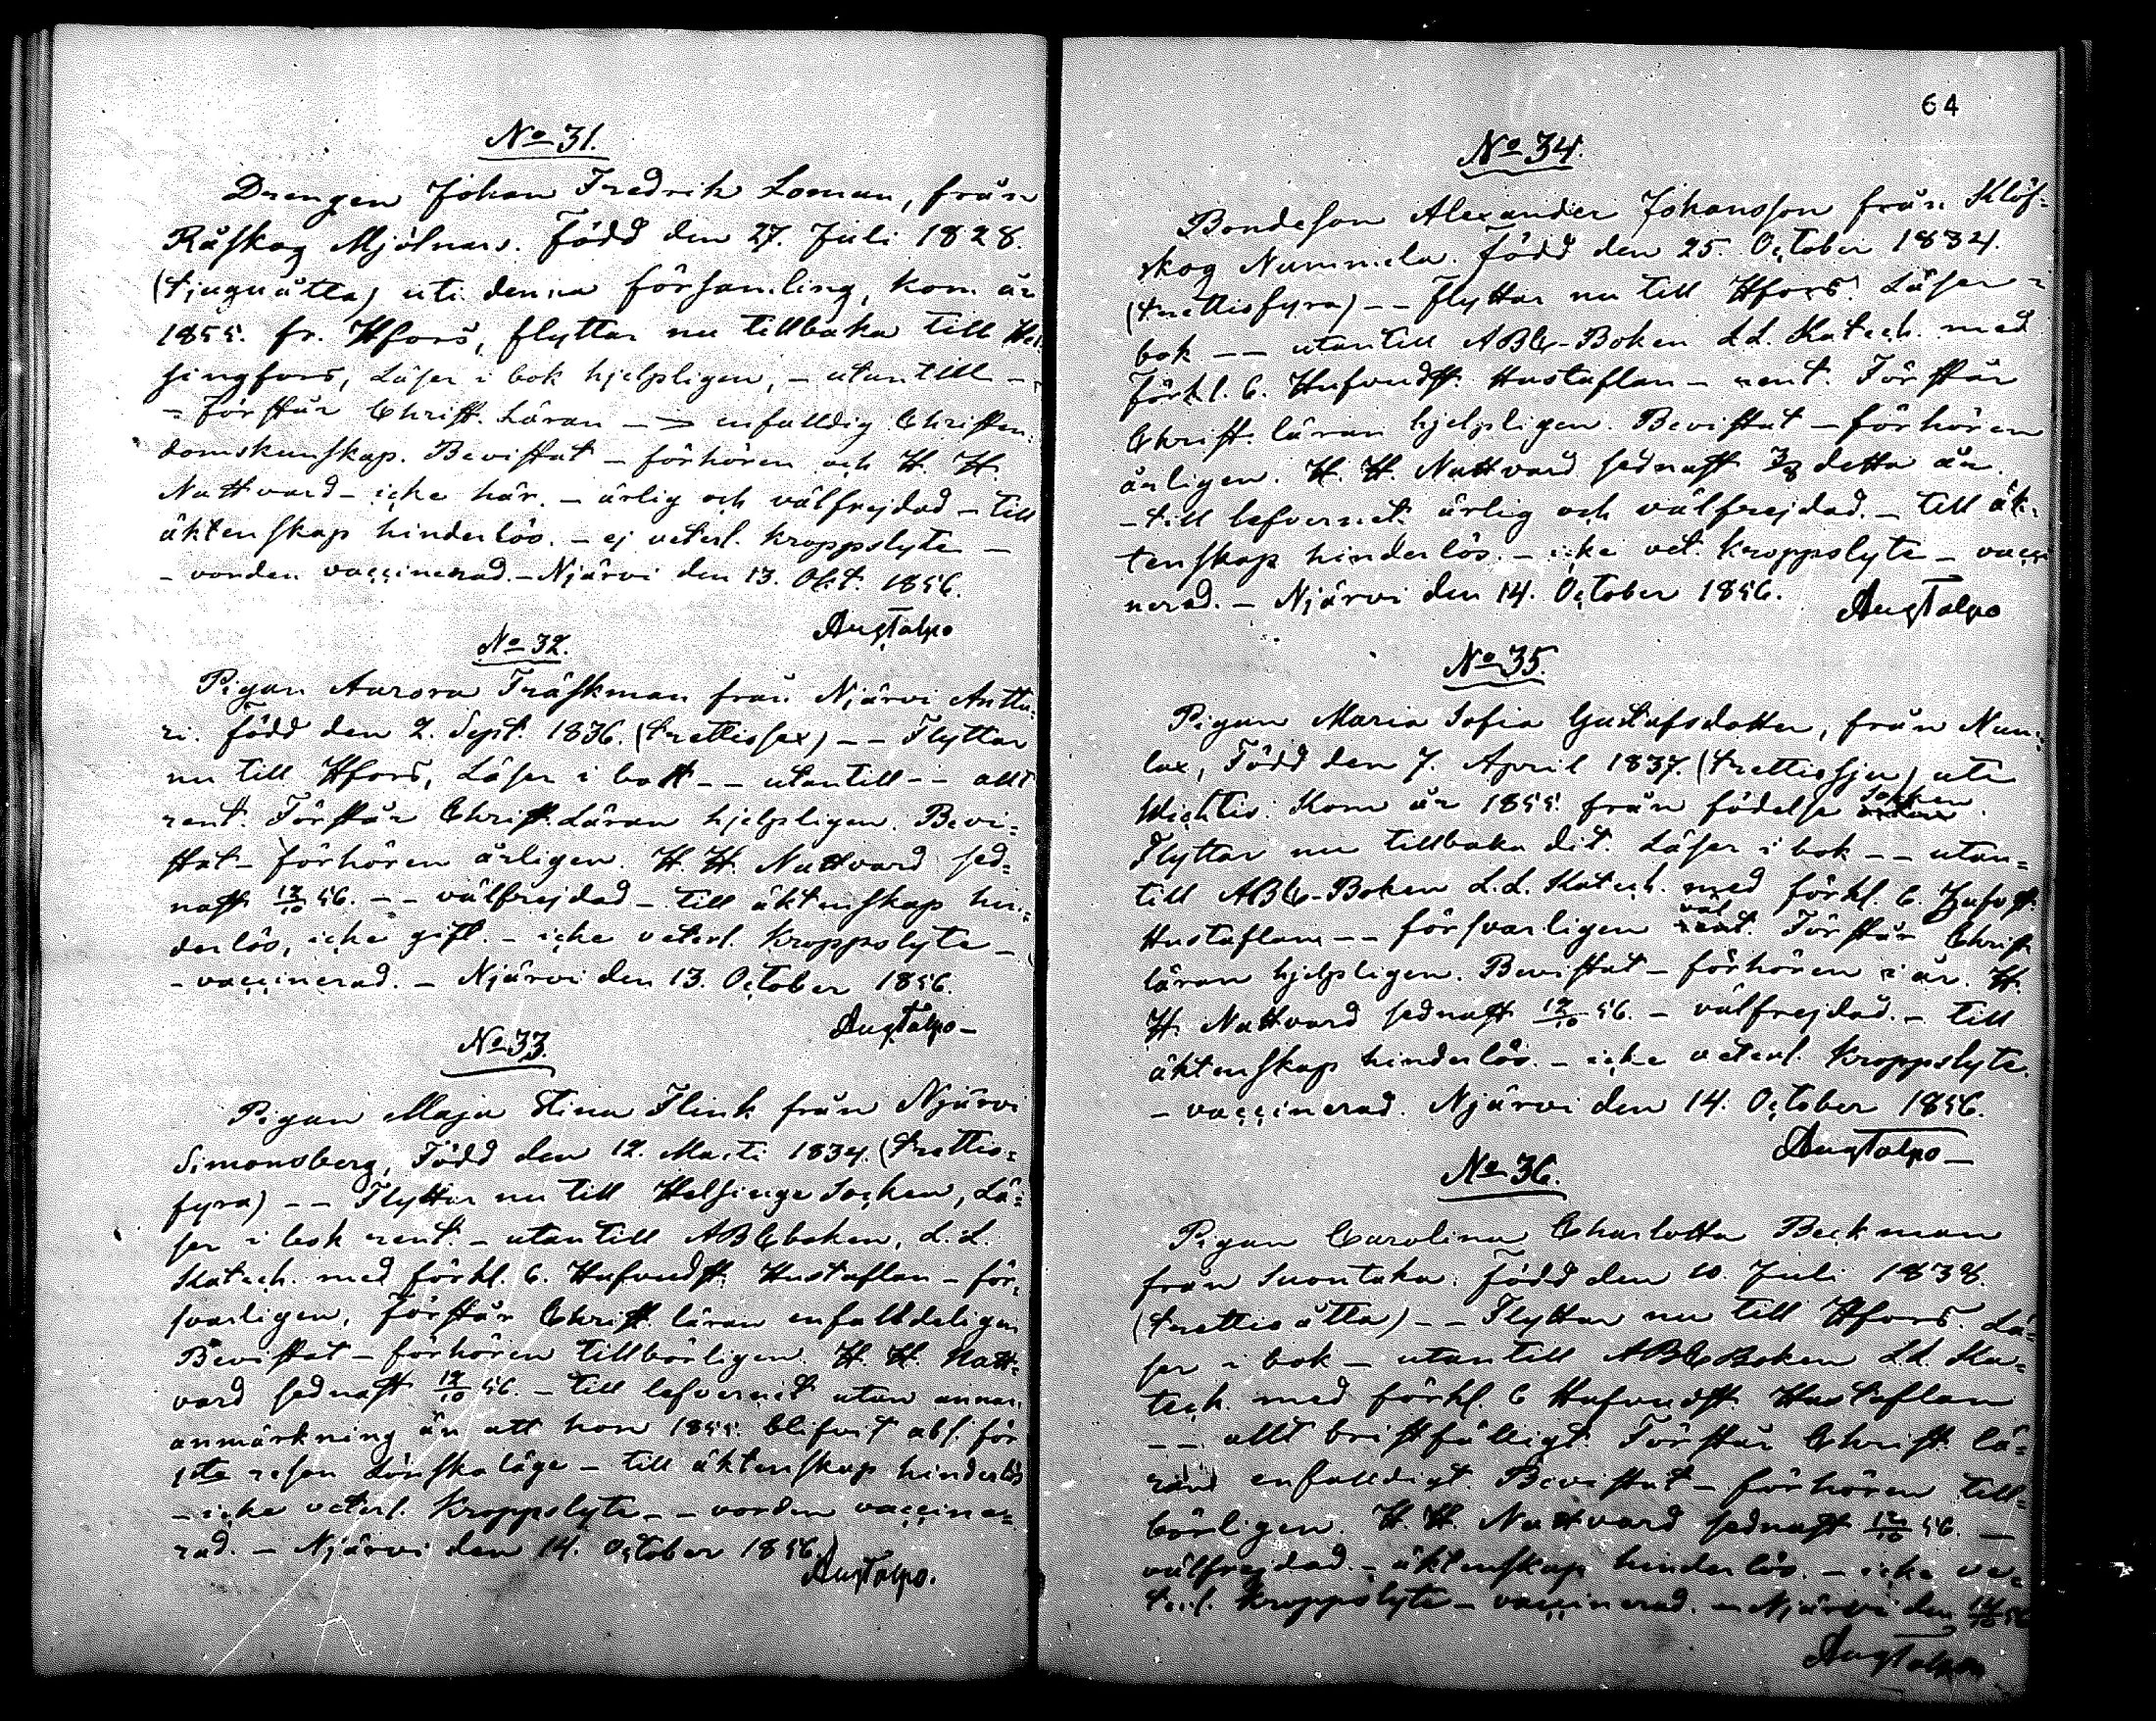 No 31.
Drengen Johan Fredrik Loman, från
Råskog Mjölnars. Född den 27. Juli 1828.
(tjuguåtta) uti denna församling, kom år
1855. fr. Hfors, flyttar nu tillbaka till Hel-
singfors, Läser i bok hjelpligen, – utantill –
– Förstår Christ. Läran – enfalldig Christen-
domskunskap. Bevistat – förhören och H. H.
Nattvard – icke här. – ärlig och välfrejdad – till
äktenskap hinderlös. – ej veterl. kroppslyte –
– vorden vaccinerad. – Njärvi den 13. Okt. 1856.
AugTalpo
No 32.
Pigan Aurora Träskman från Njärvi Antta-
ri. Född den 2. Sept. 1836. (trettiosex) – – Flyttar
nu till Hfors, Läser i bok – – utantill – – allt
rent. Förstår Christ. Läran hjelpligen. Bevi-
stat – förhören årligen. H. H. Nattvard sed-
nast 12/10 56. – – välfrejdad – till äktenskap hin-
derlös, icke gift. – icke veterl. kroppslyte –
– vaccinerad. – Njärvi den 13. October 1856.
AugTalpo –
No 33.
Pigan Maja Stina Flink från Njärvi
Simonsberg, Född den 12. Marti 1834. (trettio-
fyra) – – Flyttar nu till Helsinge Socken, Lä-
ser i bok rent – utantill ABCboken, L. L.
Katech. med förkl. 6. Hufvudst. Hustaflan – för-
svarligen, Förstår Christ. läran enfalldeligen
Bevistat – förhören tillbörligen. H. H. Natt-
vard sednast 12/10 56. – till lefvernet utan annan
anmärkning än att hon 1855. blifvit abs. för
1sta resan Lönskaläge – till äktenskap hinderlös
– icke veterl. kroppslyte – – vorden vaccine-
rad. – Njärvi den 14. October 1856.
AugTalpo.
64
No 34.
Bondeson Alexander Johansson från Klöf-
skog Nummela. Född den 25. October 1834.
(trettiofyra) – – Flyttar nu till Hfors. Läser i
bok – – utantill ABC-Boken L.L. Katech. med
Förkl. 6. Hufvudst. Hustaflan – rent. Förstår
Christ. läran hjelpligen. Bevistat – förhören
årligen. H. H. Nattvard sednast 3/8 detta år.
– till lefvernet ärlig och välfrejdad. – till äk-
tenskap hinderlös. – icke vet. kroppslyte – vacci
nerad. – Njärvi den 14. October 1856.
AugTalpo
No 35.
Pigan Maria Sofia Gustafsdotter, från Num-
lax, Född den 7. April 1837. (trettiosju) uti
Wichtis. Kom år 1855. från födelse Socken.
Flyttar nu tillbaka dit. Läser i bok – – utan-
till ABC-Boken L.L. Katech. med förkl. 6. Hufvst.
Hustaflan – – försvarligen väl. Förstår Christ
läran hjelpligen. Bevistat – förhören i år. H.
H. Nattvard sednast 12/10 56. – välfrejdad. – till
äktenskap hinderlös. – icke veterl. kroppslyte.
– vaccinerad. Njärvi den 14. October 1856.
AugTalpo –
No 36.
Pigan Carolina Charlotta Beckman
från Suontaka. Född den 10. Juli 1838.
(trettioåtta) – – Flyttar nu till Hfors. Lä-
ser i bok – utantill ABCBoken L.L. Ka-
tech. med förkl. 6 Hufvudst. Hustaflan
– – allt bristfälligt. Förstår Christ. lä-
ran enfalldigt. Bevistat – förhören till-
börligen. H. H. Nattvard sednast 12/10 56. –
välfrejdad. – äktenskap hinderlös. – icke ve-
terl. kroppslyte – vaccinerad. – Njärvi den 14/10 56
AugTalpo